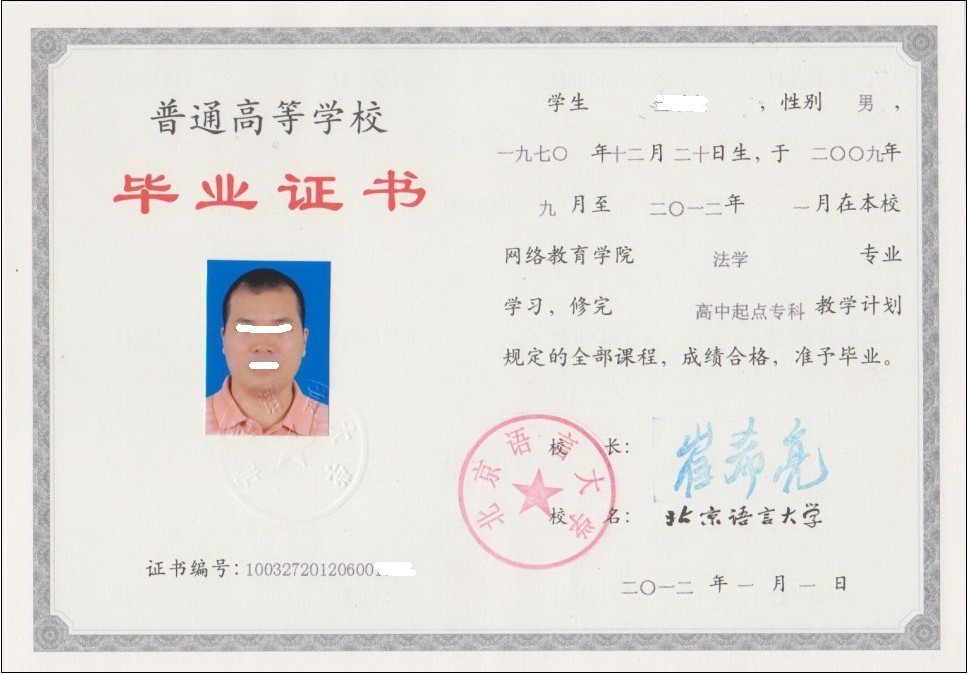 普通高等学校
毕业证书
学生 ，性别 男，
一九七〇 年十二月二十日生，于 二〇〇九年
九 月至 二〇一二年 一月在本校
网络教育学院 法学 专业
学习，修完 高中起点专科 教学计划
规定的全部课程，成绩合格，准予毕业。
校 长： 崔希亮
校 名： 北京语言大学
北京语言大学
证书编号：10032720120600
二〇一二 年 一 月 一 日